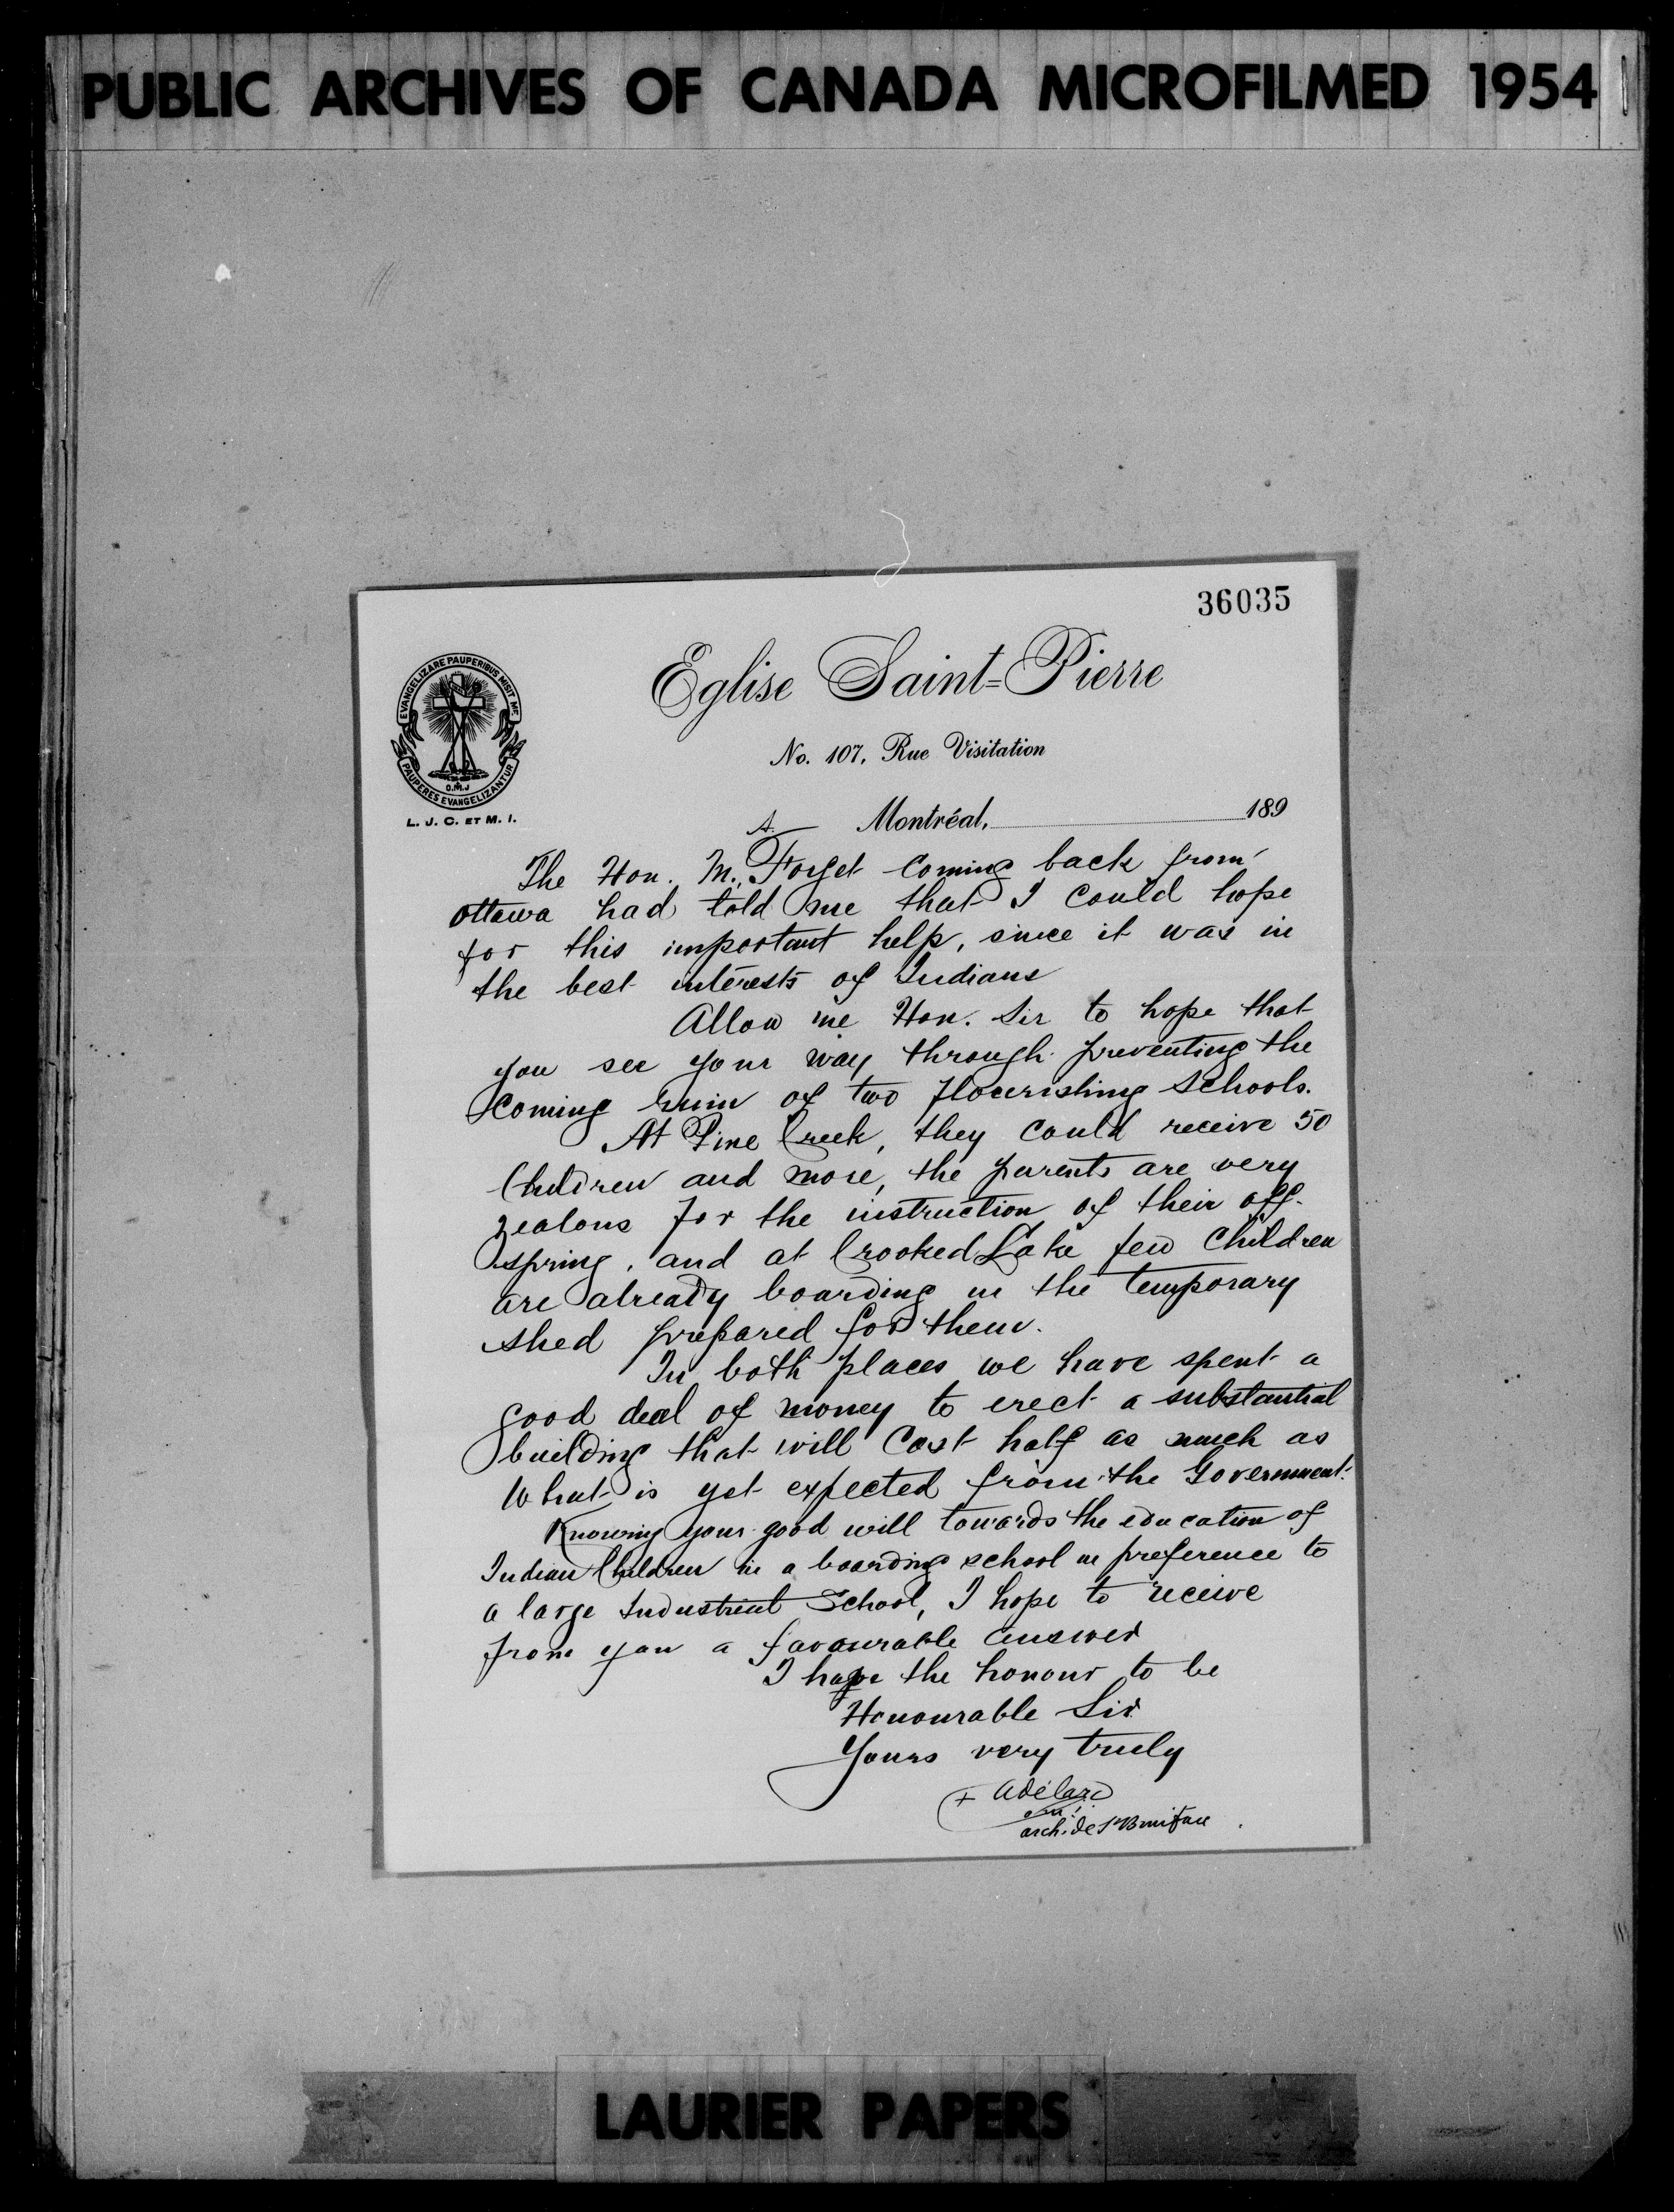 PUBLIC ARCHIVES OF CANADA MICROFILMED 1954
36035
EVANGELIZARE PAUPERIBUS MISIT ME
O.M.J
PAUPERES EVANGELIZANTUR
L. J. C. ET M. I.
Eglise Saint-Pierre
No. 107, Rue Visitation
Montréal, 189
The Hon. M. Forget coming back from
ottawa had told me that I could hope
for this important help, since it was in
the best interests of Indians
Allow me Hon. Sir to hope that
you see your way through preventing the
coming ruin of two flourishing schools.
At Pine Creek, they could receive 50
Children and more, the parents are very
zealous for the instruction of their off-
spring, and at Crooked Lake few children
are already boarding in the temporary
shed prepared for them.
In both places we have spent a
good deal of money to erect a substantial
building that will cost half as much as
what is yet expected from the Government.
Knowing your good will towards the education of
Indian Children in a boarding school in preference to
a large Industrial School, I hope to receive
from you a favourable answer
I have the honour to be
Honourable Sir
Yours very truly
+ Adélard
o.m.i.
arch. de St Boniface
LAURIER PAPERS